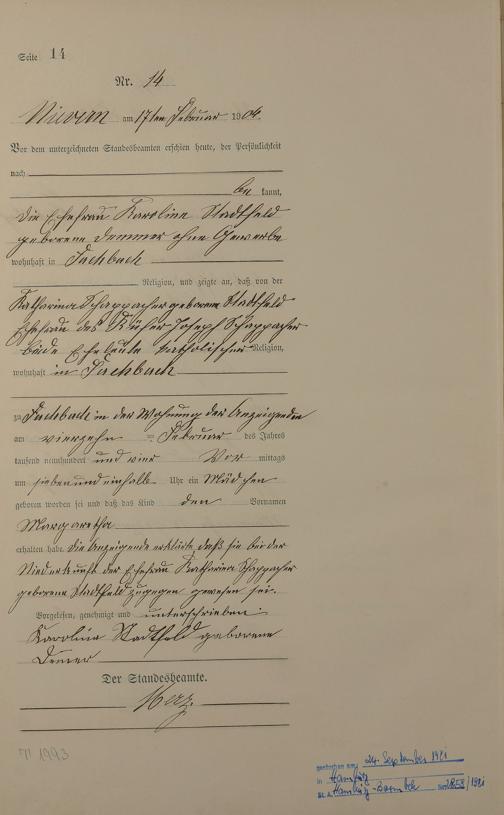 Seite 14
Nr. 14
Nievern am 17ten Februar 1904.
Vor dem unterzeichneten Standesbeamten erschien heute, der Persönlichkeit
nach
be kannt,
die Ehefrau Karoline Stadtfeld
geborene Demmer ohne Gewerbe
wohnhaft in Fachbach
Religion, und zeigte an, daß von der
Katharina Schappacher geborene Stadtfeld
Ehefrau des Küfer Joseph Schappacher
beide Eheleute katholischer Religion,
wohnhaft in Fachbach
zu Fachbach in der Wohnung der Anzeigenden
am vierzehn = Februar des Jahres
tausend neunhundert und vier Vor mittags
um sieben und einhalb Uhr ein Mädchen
geboren worden sei und daß das Kind den Vornamen
Margaretha
erhalten habe. Die Anzeigende erklärte, daß sie bei der
Niederkunft der Ehefrau Katharina Schappacher
geborene Stadtfeld zugegen gewesen sei.
Vorgelesen, genehmigt und unterschrieben:
Karolina Stadtfeld geborene
Demer
Der Standesbeamte.
Herz.
1993
gestorben am: 24. September 1921
in Hamburg
St. A. Hamburg-Barmbek /1921